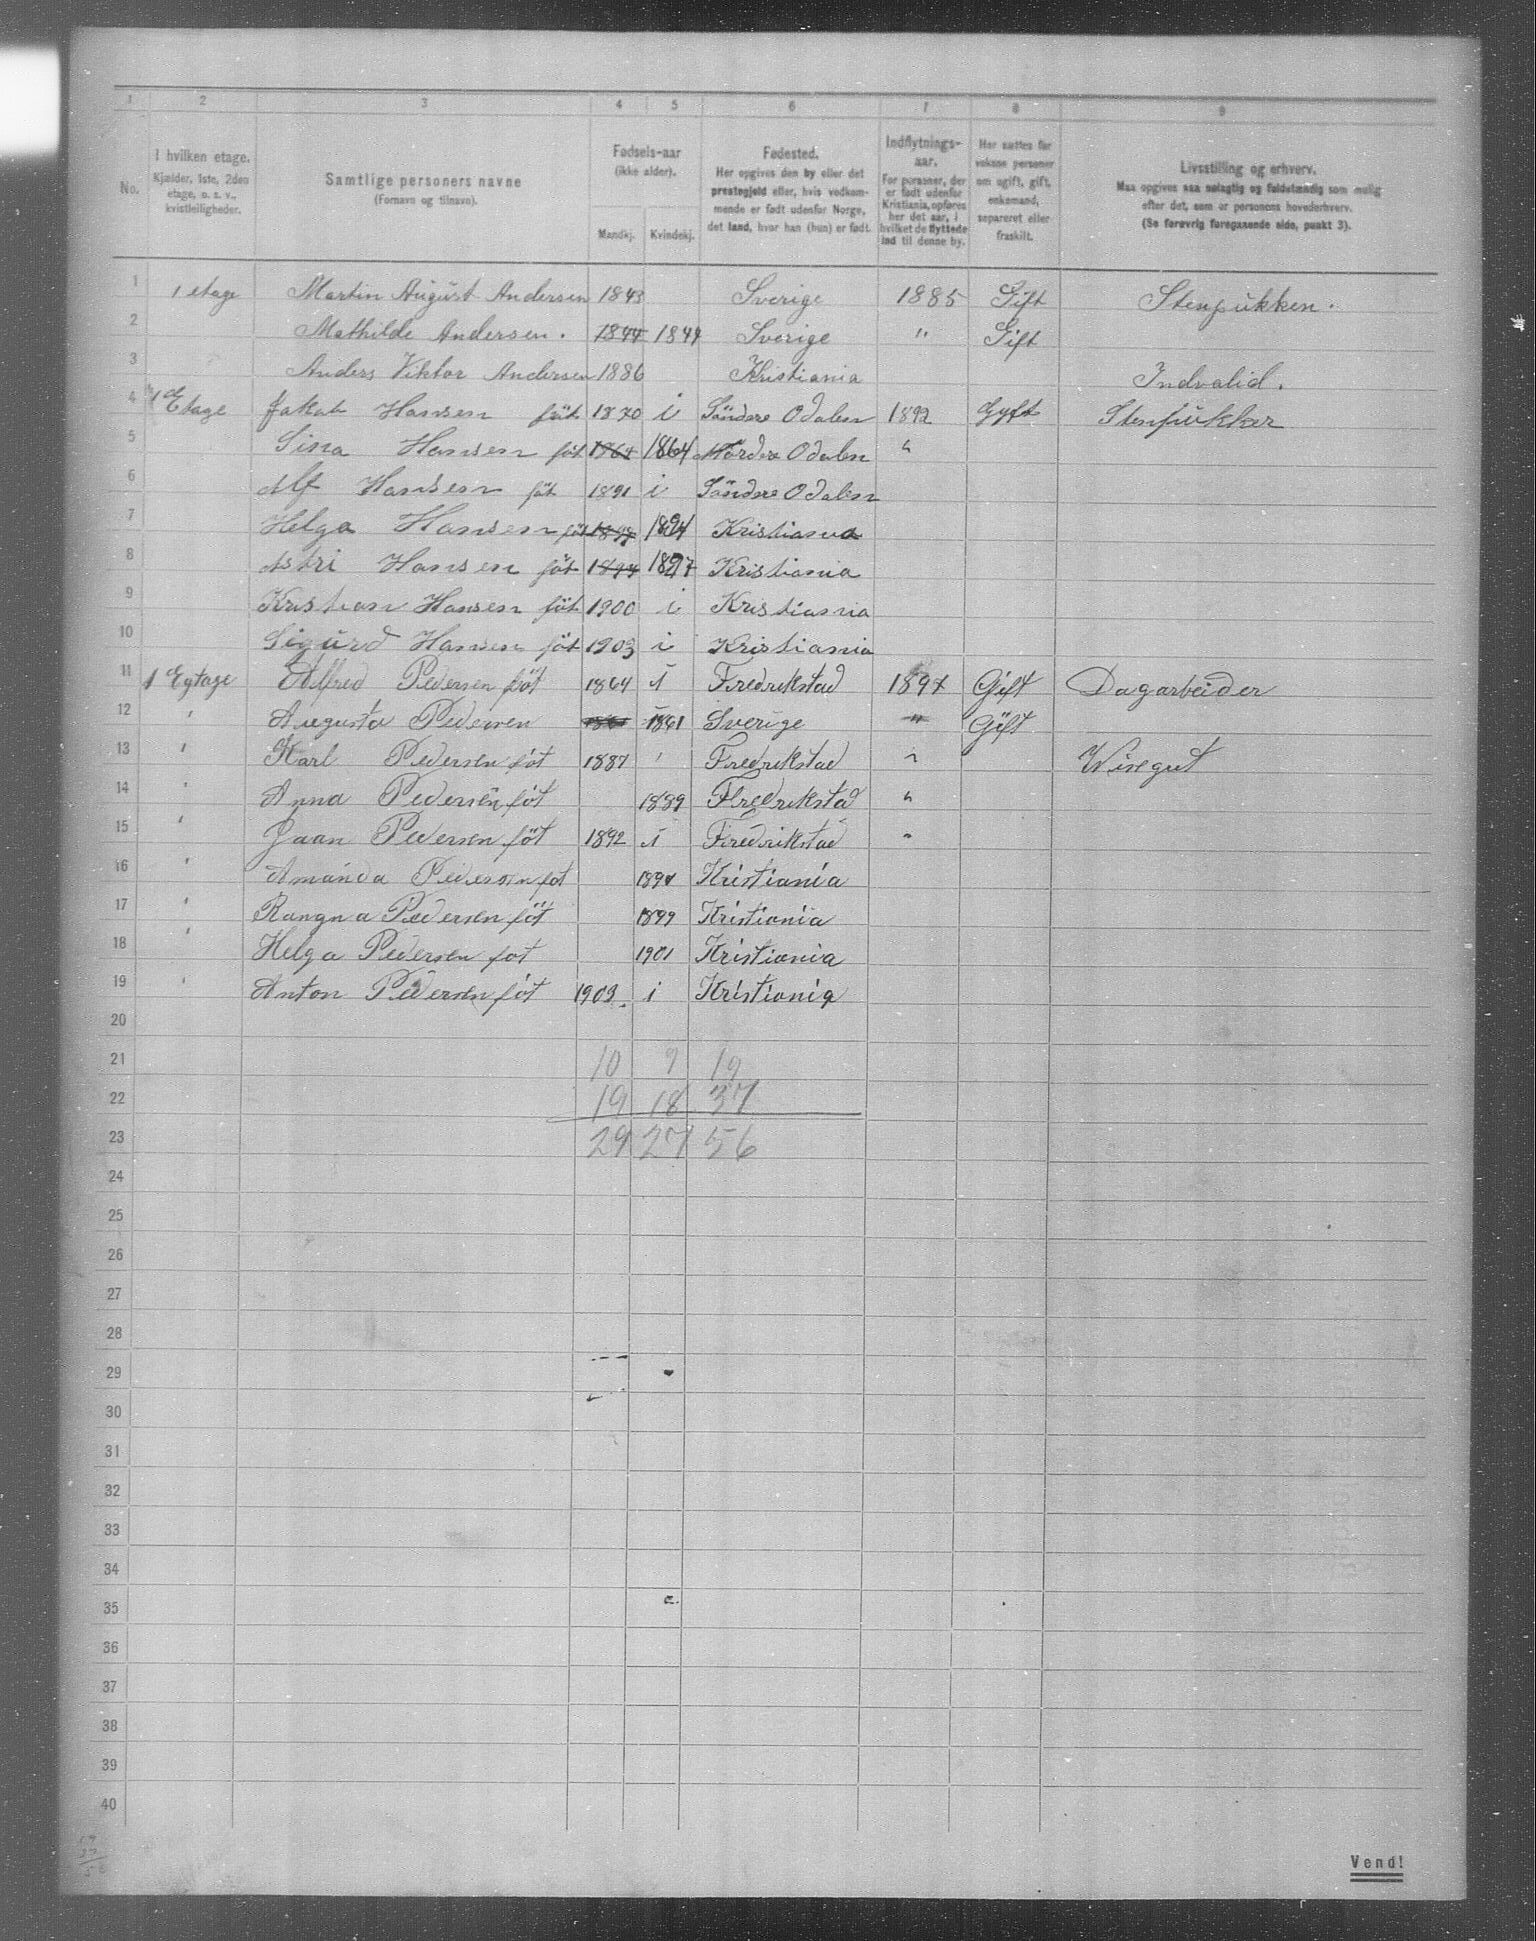 1 2 3 4 5 6 7 8 9
No. I hvilken etage. Kjælder, 1ste, 2den etage, o. s. v., kvistleiligheder. Samtlige personers navne (Fornavn og tilnavn). Fødsels-aar (ikke alder). Mandkj. Kvindekj. Fødested. Her opgives den by eller det prestegjeld eller, hvis vedkommende er født udenfor Norge, det land, hvor han (hun) er født. Indflytnings-aar. For personer, der er født udenfor Kristiania, opføres her det aar, i hvilket de flyttede ind til denne by. Her sættes for voksne personer om ugift, gift, enkemand, separeret eller fraskilt. Livsstilling og erhverv. Maa opgives saa nøiagtig og fuldstændig som mulig efter det, som er personens hovederhverv. (Se forøvrig foregaaende side, punkt 3).
1 1 etage Martin August Andersen 1843 Sverige 1885 Gift Stenpukken.
2 Mathilde Andersen. 1844 1844 Sverige " Gift
3 Anders Viktor Andersen 1886 Kristiania Indvalid.
4 1 Etage Jakob Hansen föt 1870 i Söndre Odalen 1892 Gyft Stenpukker
5 Sina Hansen föt 1864 1864 Nordre Odalen "
6 Alf Hansen föt 1891 i Söndre Odalen
7 Helga Hansen föt 1894 Kristiania
8 Astri Hansen föt 1897 1897 Kristiania
9 Kristian Hansen föt 1900 i Kristiania
10 Sigurd Hansen föt 1903 i Kristiania
11 1 Egtage Alfred Pedersen föt 1864 i Fredrikstad 1894 Gift Dagarbeider
12 " Augusta Pedersen 1861 1861 Sverige " Gift
13 " Karl Pedersen föt 1887 " Fredrikstad " Wisegut
14 " Anna Pedersen föt 1889 Fredrikstad "
15 " Jaan Pedersen föt 1892 i Fredrikstad "
16 " Amanda Pedersen föt Kristiania
17 " Rangna Pedersen föt 1899 Kristiania
18 " Helga Pedersen föt 1901 Kristiania
19 " Anton Pedersen föt 1903. i Kristiania
20
21 10 9 19
22 19 18 37
23 29 27 56
24
25
26
27
28
29
30
31
32
33
34
35
36
37
38
39
40
19
37
56
Vend!